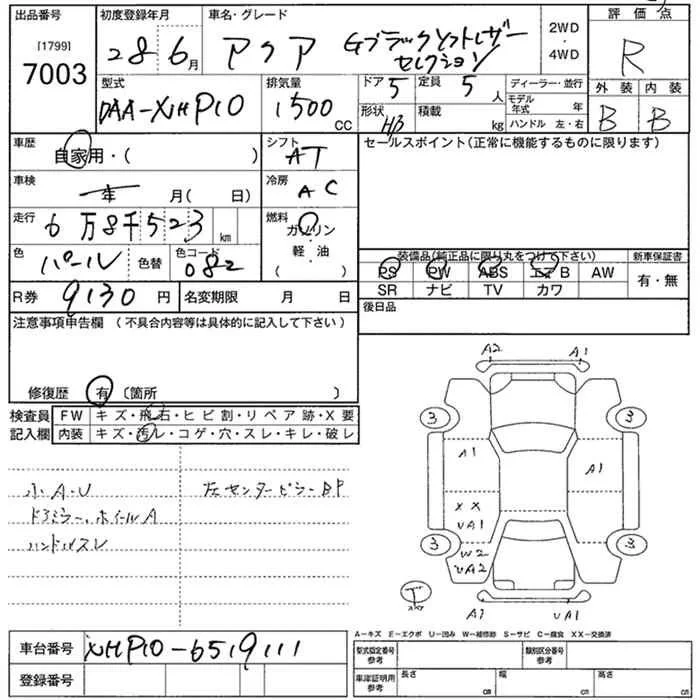 出品番号 初度登録年月 車名・グレード 2WD 評価点
[1799] 7003 28年6月 アクア Gブラックソフトレザーセレクション ・4WD R
型式 排気量 ドア 5 定員 5人 ディーラー・並行 外装 内装
DAA-NHP10 1500cc 形状 H/B 積載 kg モデル年式 年 B B
ハンドル 左・右
車歴 自家用・( ) シフト AT セールスポイント(正常に機能するものに限ります)
車検 年 月( 日) 冷房 AC
走行 6万8千523km 燃料 ガソリン
軽・油
( )
色 パール 色替 色コード 082
装備品(純正品に限り丸をつけて下さい) 新車保証書
PS PW ABS エアB AW 有・無
SR ナビ TV カワ
R券 9130円 名変期限 月 日 後日品
注意事項申告欄 (不具合内容等は具体的に記入して下さい)
修復歴 有 〔箇所 )
検査員記入欄 FW キズ・飛石・ヒビ割・リペア跡・X要
内装 キズ・汚レ・コゲ・穴・スレ・キレ・破レ
小A・U 左センターピラーBP
ドアミラー、ホイールA
ハンドルスレ
A2 A1
3 3
A1 A1
XX
UA1
3 3
W2
UA2
T
A1 UA1
A−キズ E−エクボ U−凹み W−補修跡 S−サビ C−腐食 XX−交換済
車台番号 NHP10-6519111
登録番号
型式指定番号 参考 類別区分番号 参考
車庫証明用 参考 長さ cm 幅 cm 高さ cm